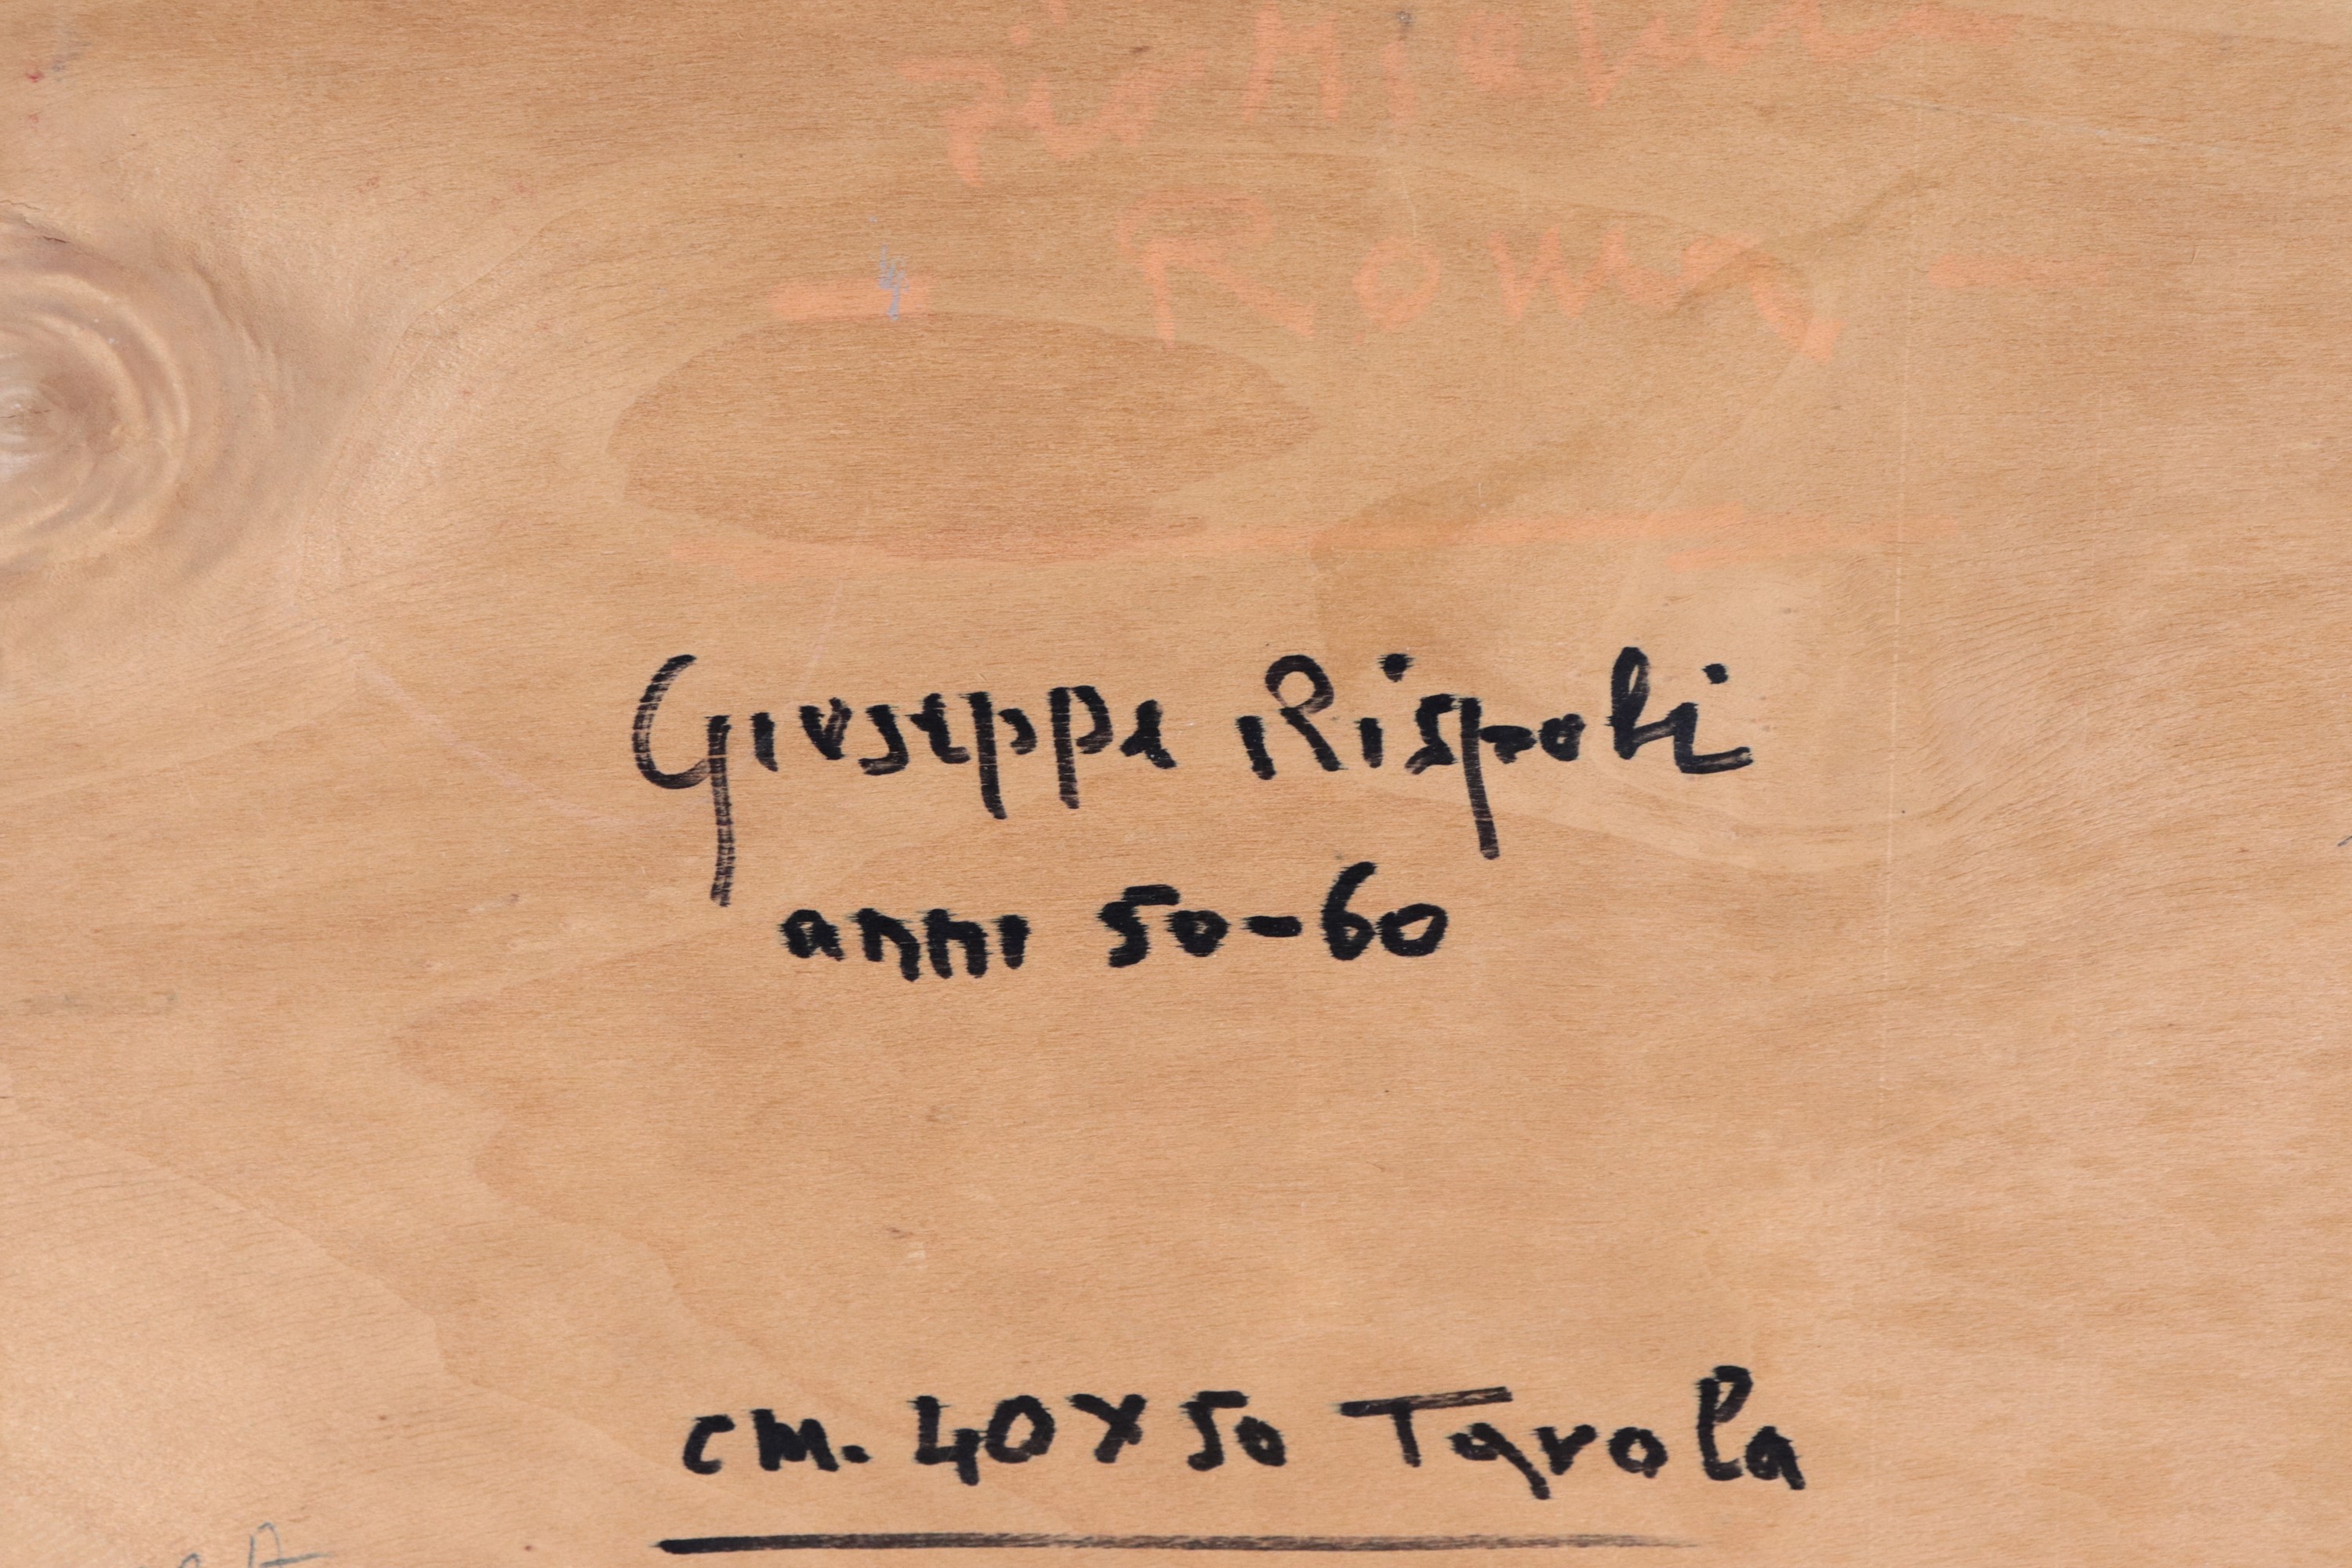 - Roma -
Giuseppe Rispoli
anni 50-60
cm. 40x50 Tavola